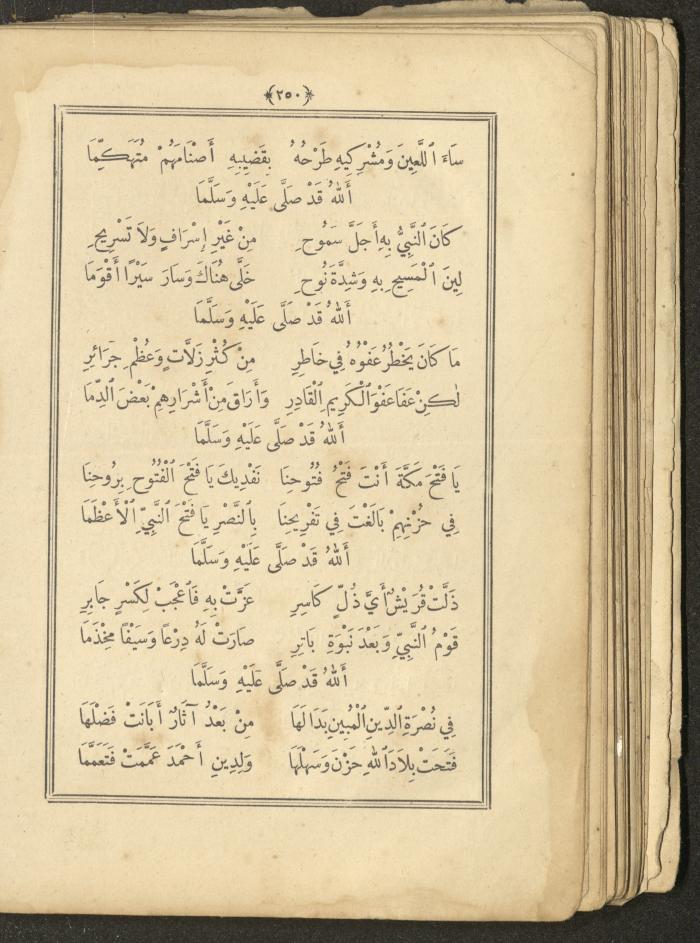 ﴿٢٥٠﴾
سَاءَ ٱللَّعِينَ وَمُشْرِكِيهِ طَرْحُهُ بِقَضِيبِهِ أَصْنَامَهُمْ مُتَهَكِّمَا
أَللهُ قَدْ صَلَّى عَلَيْهِ وَسَلَّمَا
كَانَ ٱلنَّبِيُّ بِهِ أَجَلَّ سَمُوحِ مِنْ غَيْرِ إِسْرَافٍ وَلَا تَسْرِيحِ
لِينَ ٱلْمَسِيحِ بِهِ وَشِدَّةَ نُوحِ خَلَّى هُنَاكَ وَسَارَ سَيْرًا أَقْوَمَا
أَللهُ قَدْ صَلَّى عَلَيْهِ وَسَلَّمَا
مَا كَانَ يَخْطُرُ عَفْوُهُ فِي خَاطِرِ مِنْ كُثْرِ زَلَّاتٍ وَعُظْمِ جَرَائِرِ
لٰكِنْ عَفَا عَفْوَ ٱلْكَرِيمِ ٱلْقَادِرِ وَأَرَاقَ مِنْ أَشْرَارِهِمْ بَعْضَ ٱلدِّمَا
أَللهُ قَدْ صَلَّى عَلَيْهِ وَسَلَّمَا
يَا فَتْحَ مَكَّةَ أَنْتَ فَتْحُ فُتُوحِنَا نَفْدِيكَ يَا فَتْحَ ٱلْفُتُوحِ بِرُوحِنَا
فِي حُزْنِهِمْ بَالَغْتَ فِي تَفْرِيحِنَا بِٱلنَّصْرِ يَا فَتْحَ ٱلنَّبِيِّ ٱلْأَعْظَمَا
أَللهُ قَدْ صَلَّى عَلَيْهِ وَسَلَّمَا
ذَلَّتْ قُرَيْشٌ أَيَّ ذُلٍّ كَاسِرِ عَزَّتْ بِهِ فَٱعْجَبْ لِكَسْرٍ جَابِرِ
قَوْمُ ٱلنَّبِيِّ وَبَعْدَ نَبْوَةِ بَاتِرِ صَارَتْ لَهُ دِرْعًا وَسَيْفًا مِخْذَمَا
أَللهُ قَدْ صَلَّى عَلَيْهِ وَسَلَّمَا
فِي نُصْرَةِ ٱلدِّينِ ٱلْمُبِينِ بَدَا لَهَا مِنْ بَعْدُ آثَارٌ أَبَانَتْ فَضْلَهَا
فَتَحَتْ بِلَادَ ٱللهِ حَزْنَ وَسَهْلَهَا وَلِدِينِ أَحْمَدَ عَمَّمَتْ فَتَعَمَّمَا